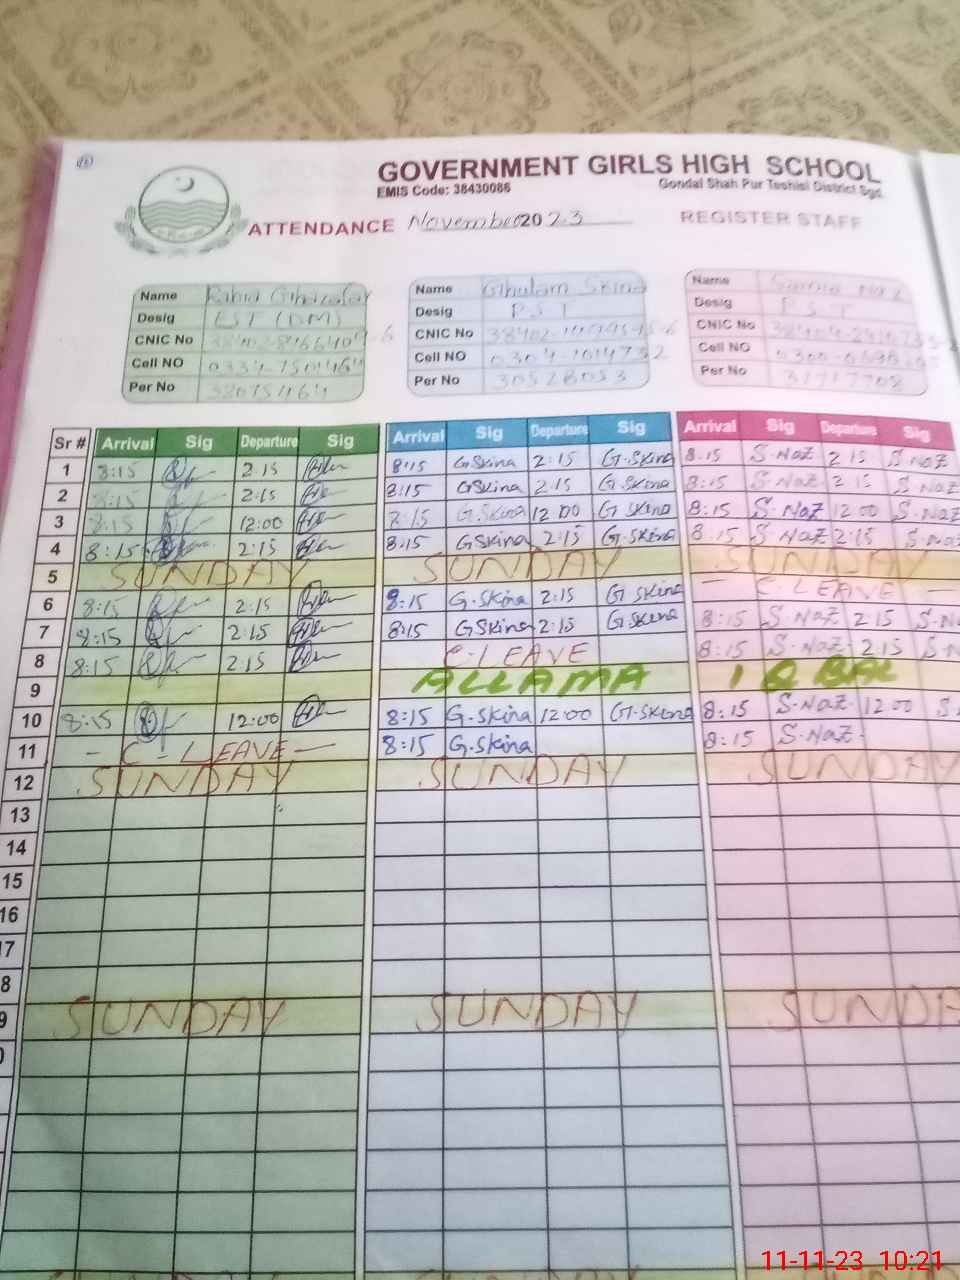 GOVERNMENT GIRLS HIGH SCHOOL
EMIS Code: 38430086 Gondal Shah Pur Teshisl District Sgd
ATTENDANCE November 2023 REGISTER STAFF
Name Name Ghulam Skina Name
Desig EST (DM) Desig PST Desig PST
CNIC No CNIC No CNIC No
Cell NO Cell NO Cell NO
Per No Per No 30528053 Per No
Sr # Arrival Sig Departure Sig Arrival Sig Departure Sig Arrival Sig Departure Sig
1 8:15 2:15 8:15 G Skina 2:15 G.Skina 8:15 S.Naz 2 15 S.Naz
2 8:15 2:15 8:15 GSkina 2:15 G.Skina 8:15 S.Naz 2 15 S.Naz
3 8:15 12:00 8:15 G.Skina 12 00 G Skina 8:15 S.Naz 12 00 S.Naz
4 8:15 2:15 8:15 GSkina 2:15 G.Skina 8:15 S.Naz 2:15 S.Naz
5 SUNDAY SUNDAY SUNDAY
6 8:15 2:15 8:15 G.Skina 2:15 G Skina – C.LEAVE –
7 8:15 2:15 8:15 GSkina 2:15 G.Skina 8:15 S.Naz 2 15 S.N
8 8:15 2:15 C.LEAVE 8:15 S.Naz 2:15
9 ALLAMA IQBAL
10 8:15 12:00 8:15 G.Skina 12:00 G.Skina 8:15 S.Naz 12 00 S.
11 – C.LEAVE – 8:15 G.Skina 8:15 S.Naz
12 SUNDAY SUNDAY SUNDAY
13
14
15
16
17
8
9 SUNDAY SUNDAY SUNDAY
0
11-11-23 10:21